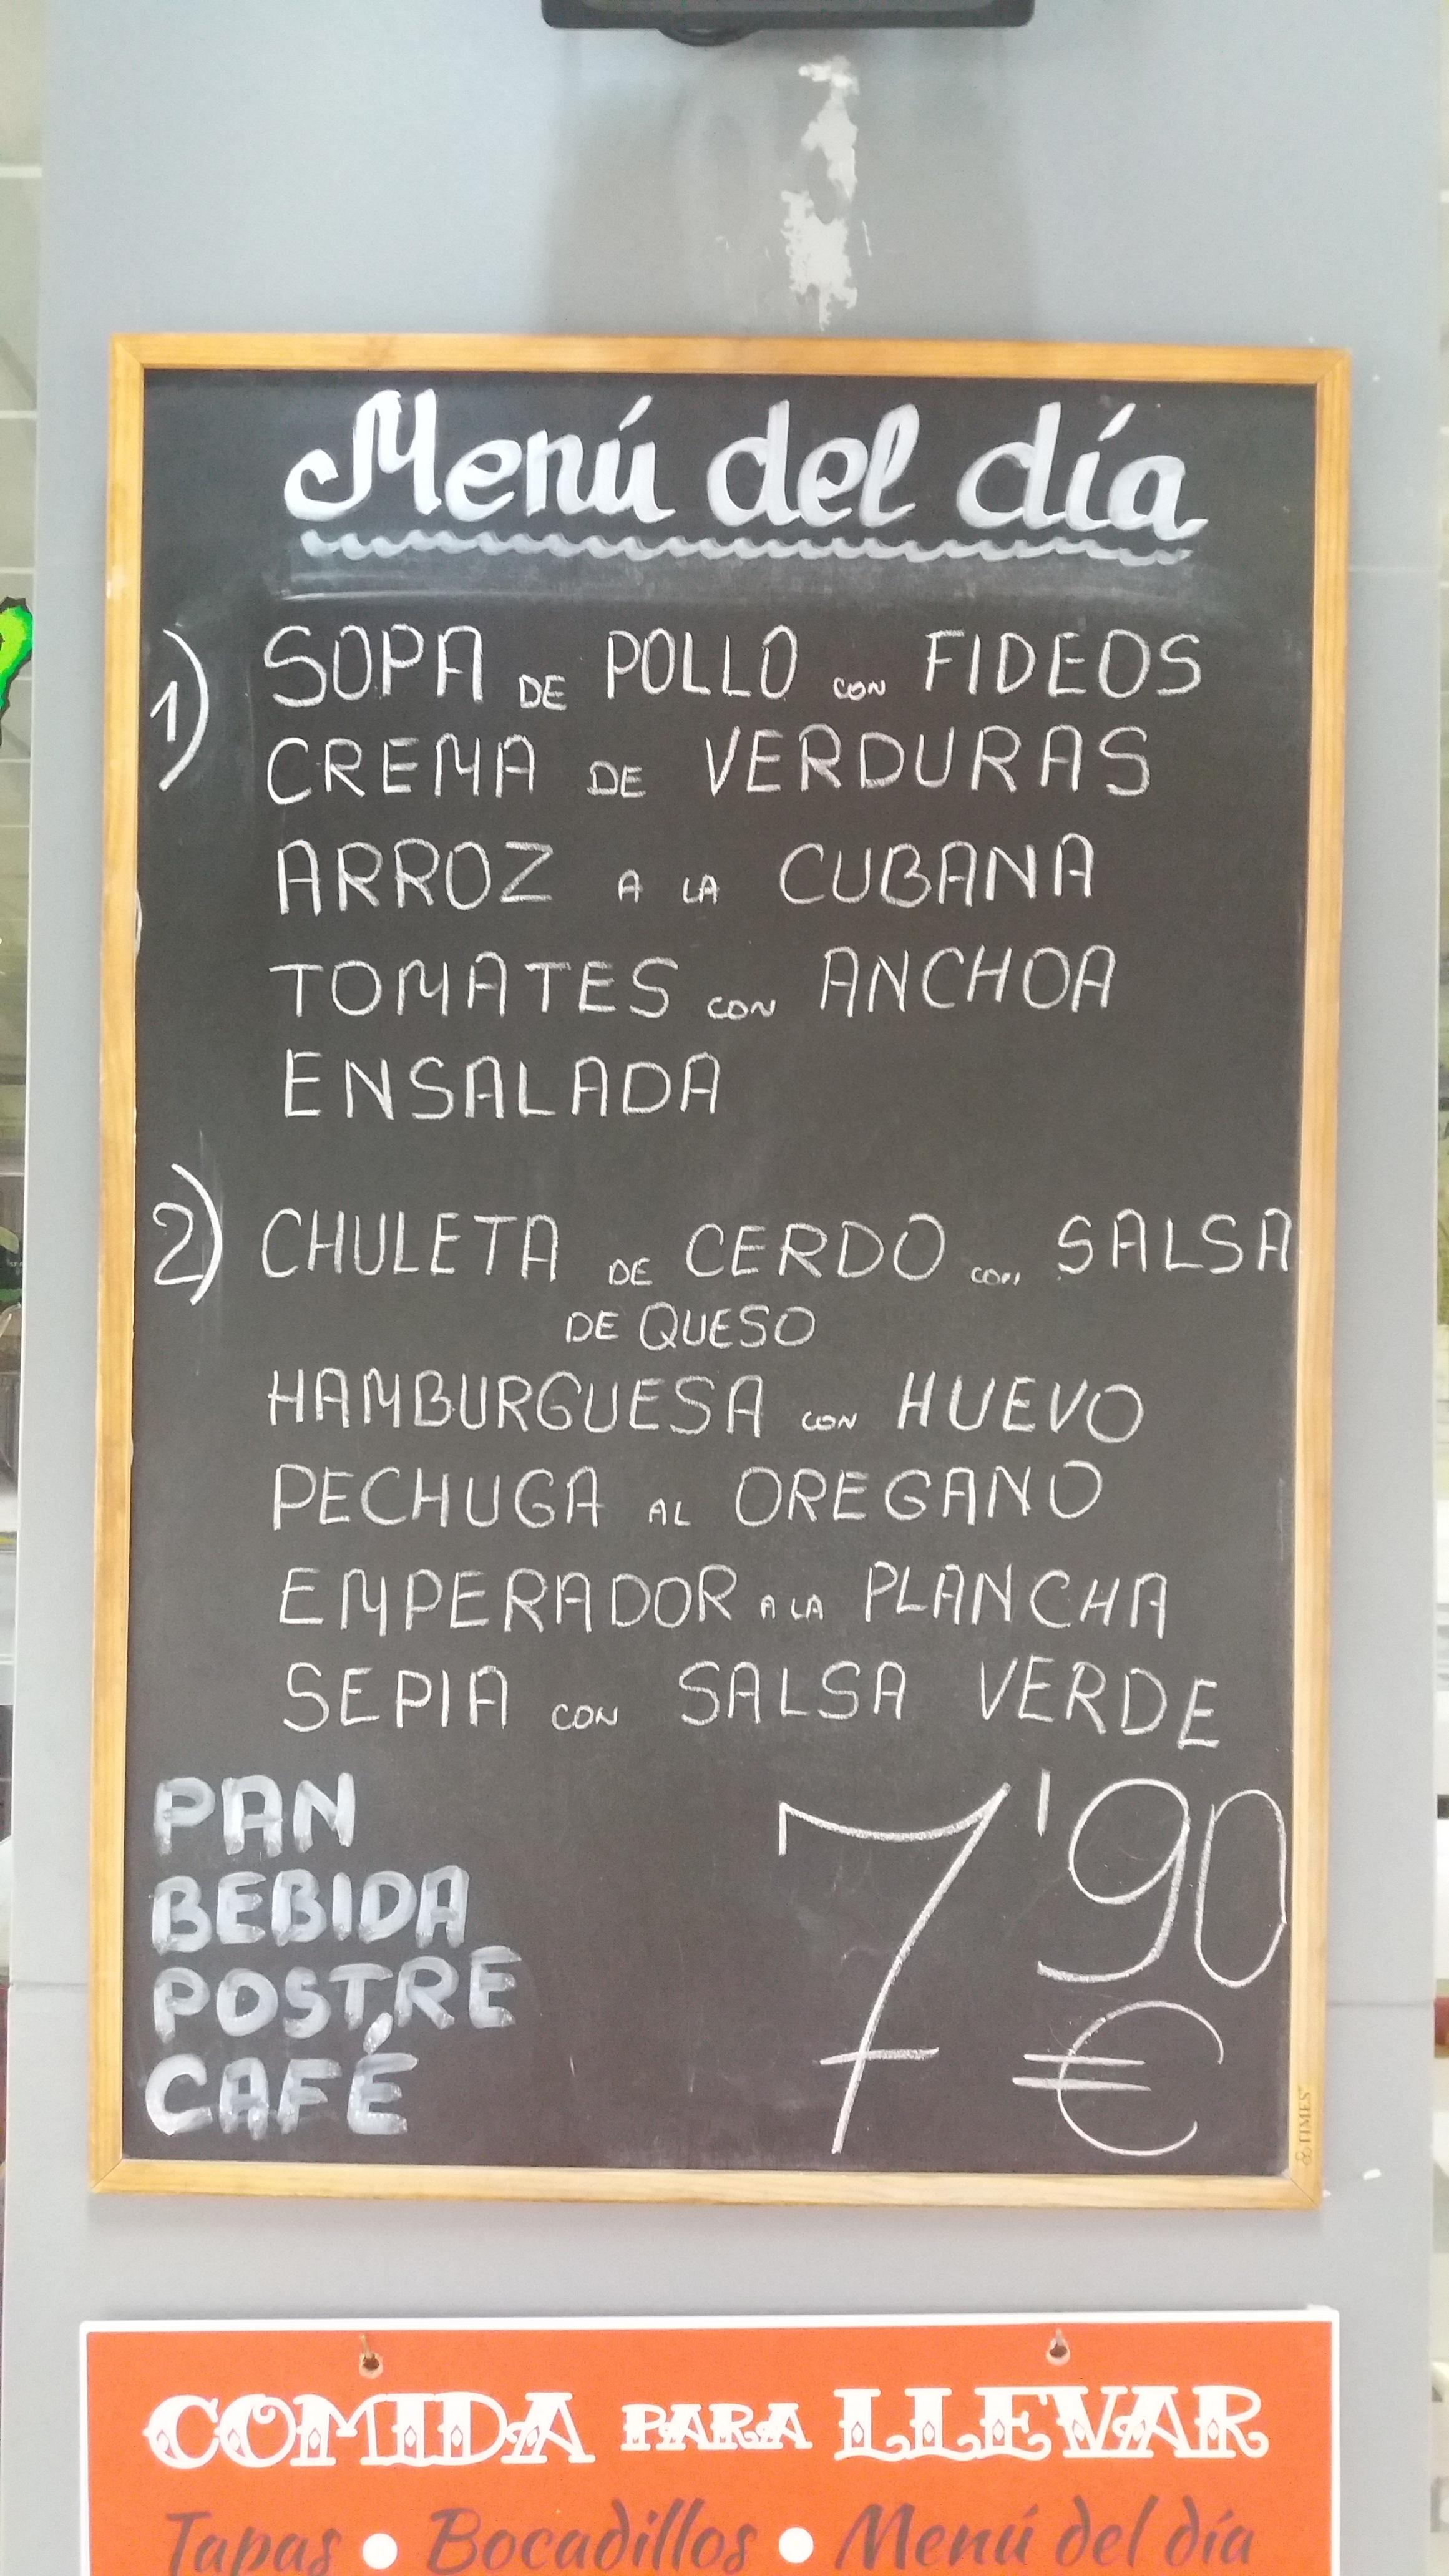 Menú del día
1) SOPA DE POLLO CON FIDEOS
CREMA DE VERDURAS
ARROZ A LA CUBANA
TOMATES CON ANCHOA
ENSALADA
2) CHULETA DE CERDO CON SALSA
DE QUESO
HAMBURGUESA CON HUEVO
PECHUGA AL OREGANO
EMPERADOR A LA PLANCHA
SEPIA CON SALSA VERDE
PAN
BEBIDA
POSTRE
CAFÉ
7'90
€
TIMES
COMIDA PARA LLEVAR
Tapas • Bocadillos • Menú del día